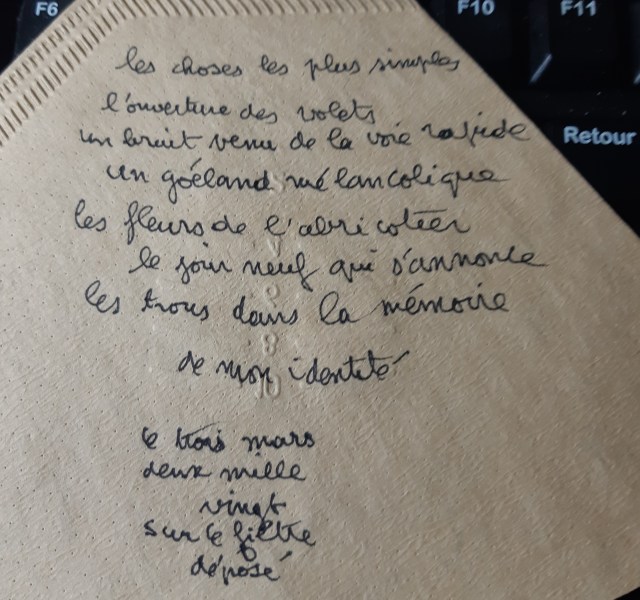 F6
F10
F11
Retour
les choses les plus simples
l'ouverture des volets
un bruit venu de la voie rapide
un goéland mélancolique
les fleurs de l'abricotier
le jour neuf qui s'annonce
les trous dans la mémoire
de mon identité
le trois mars
deux mille
vingt
sur le filtre
déposé